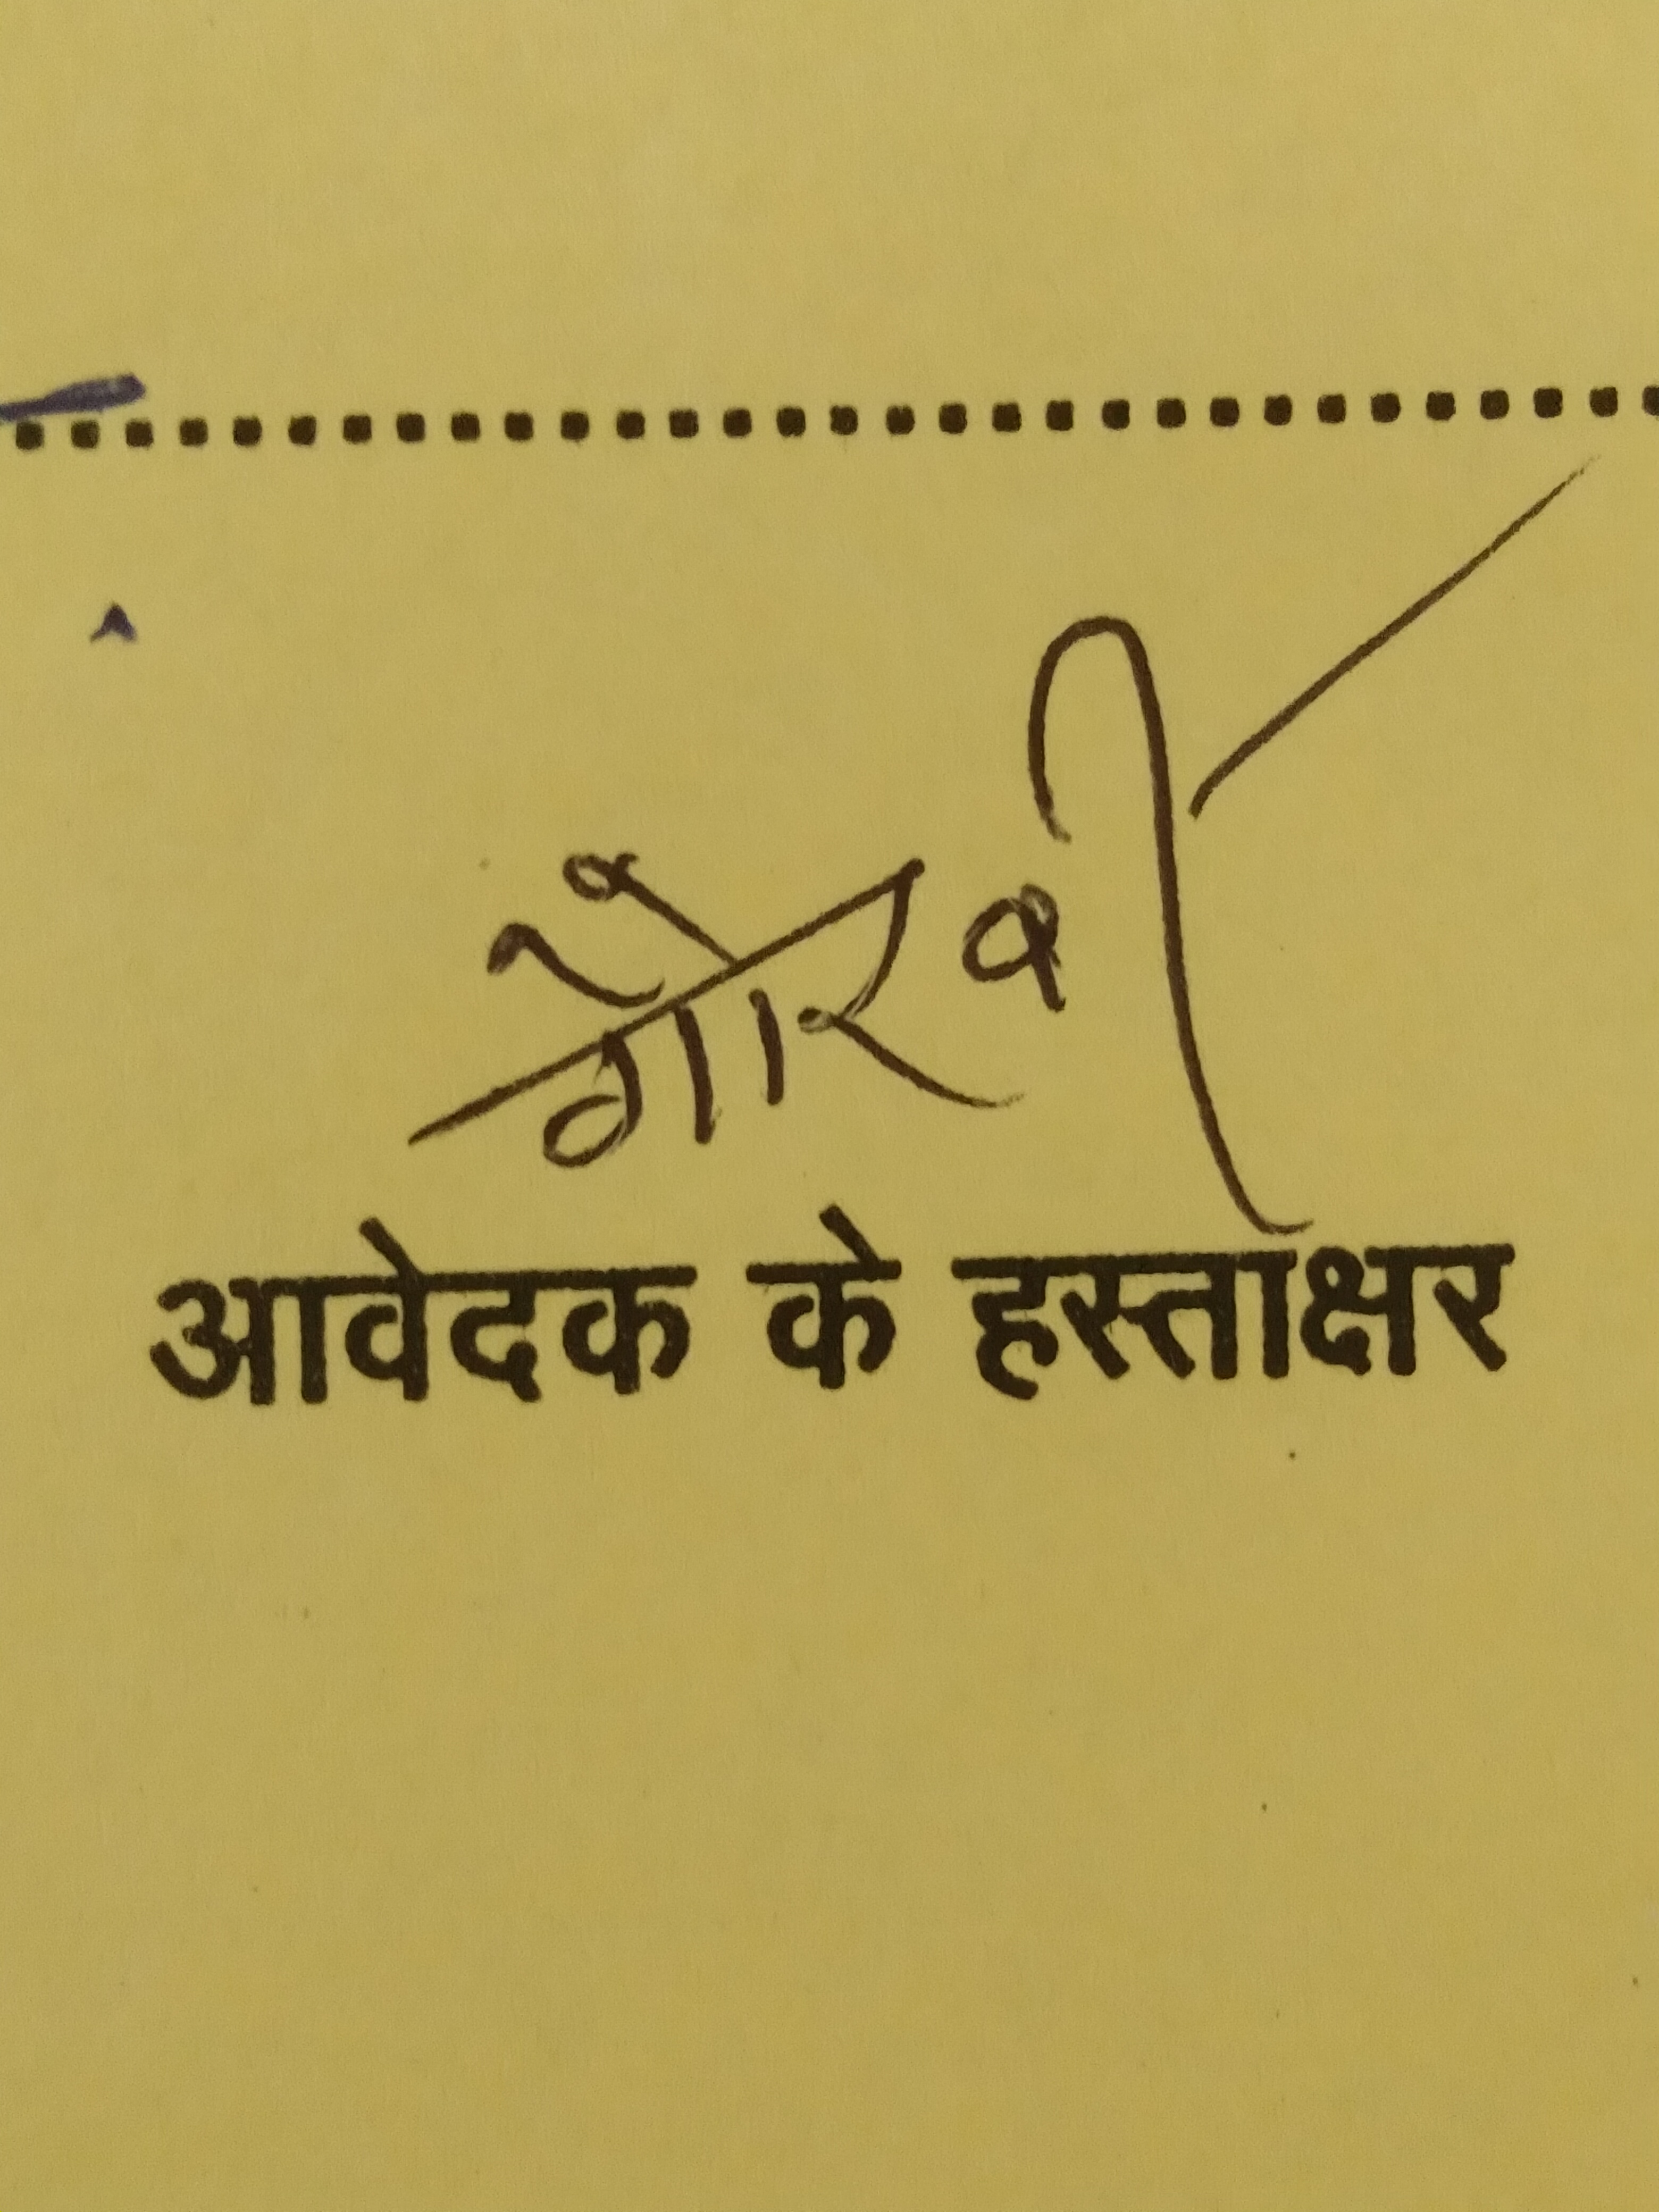 गौरवी
आवेदक के हस्ताक्षर